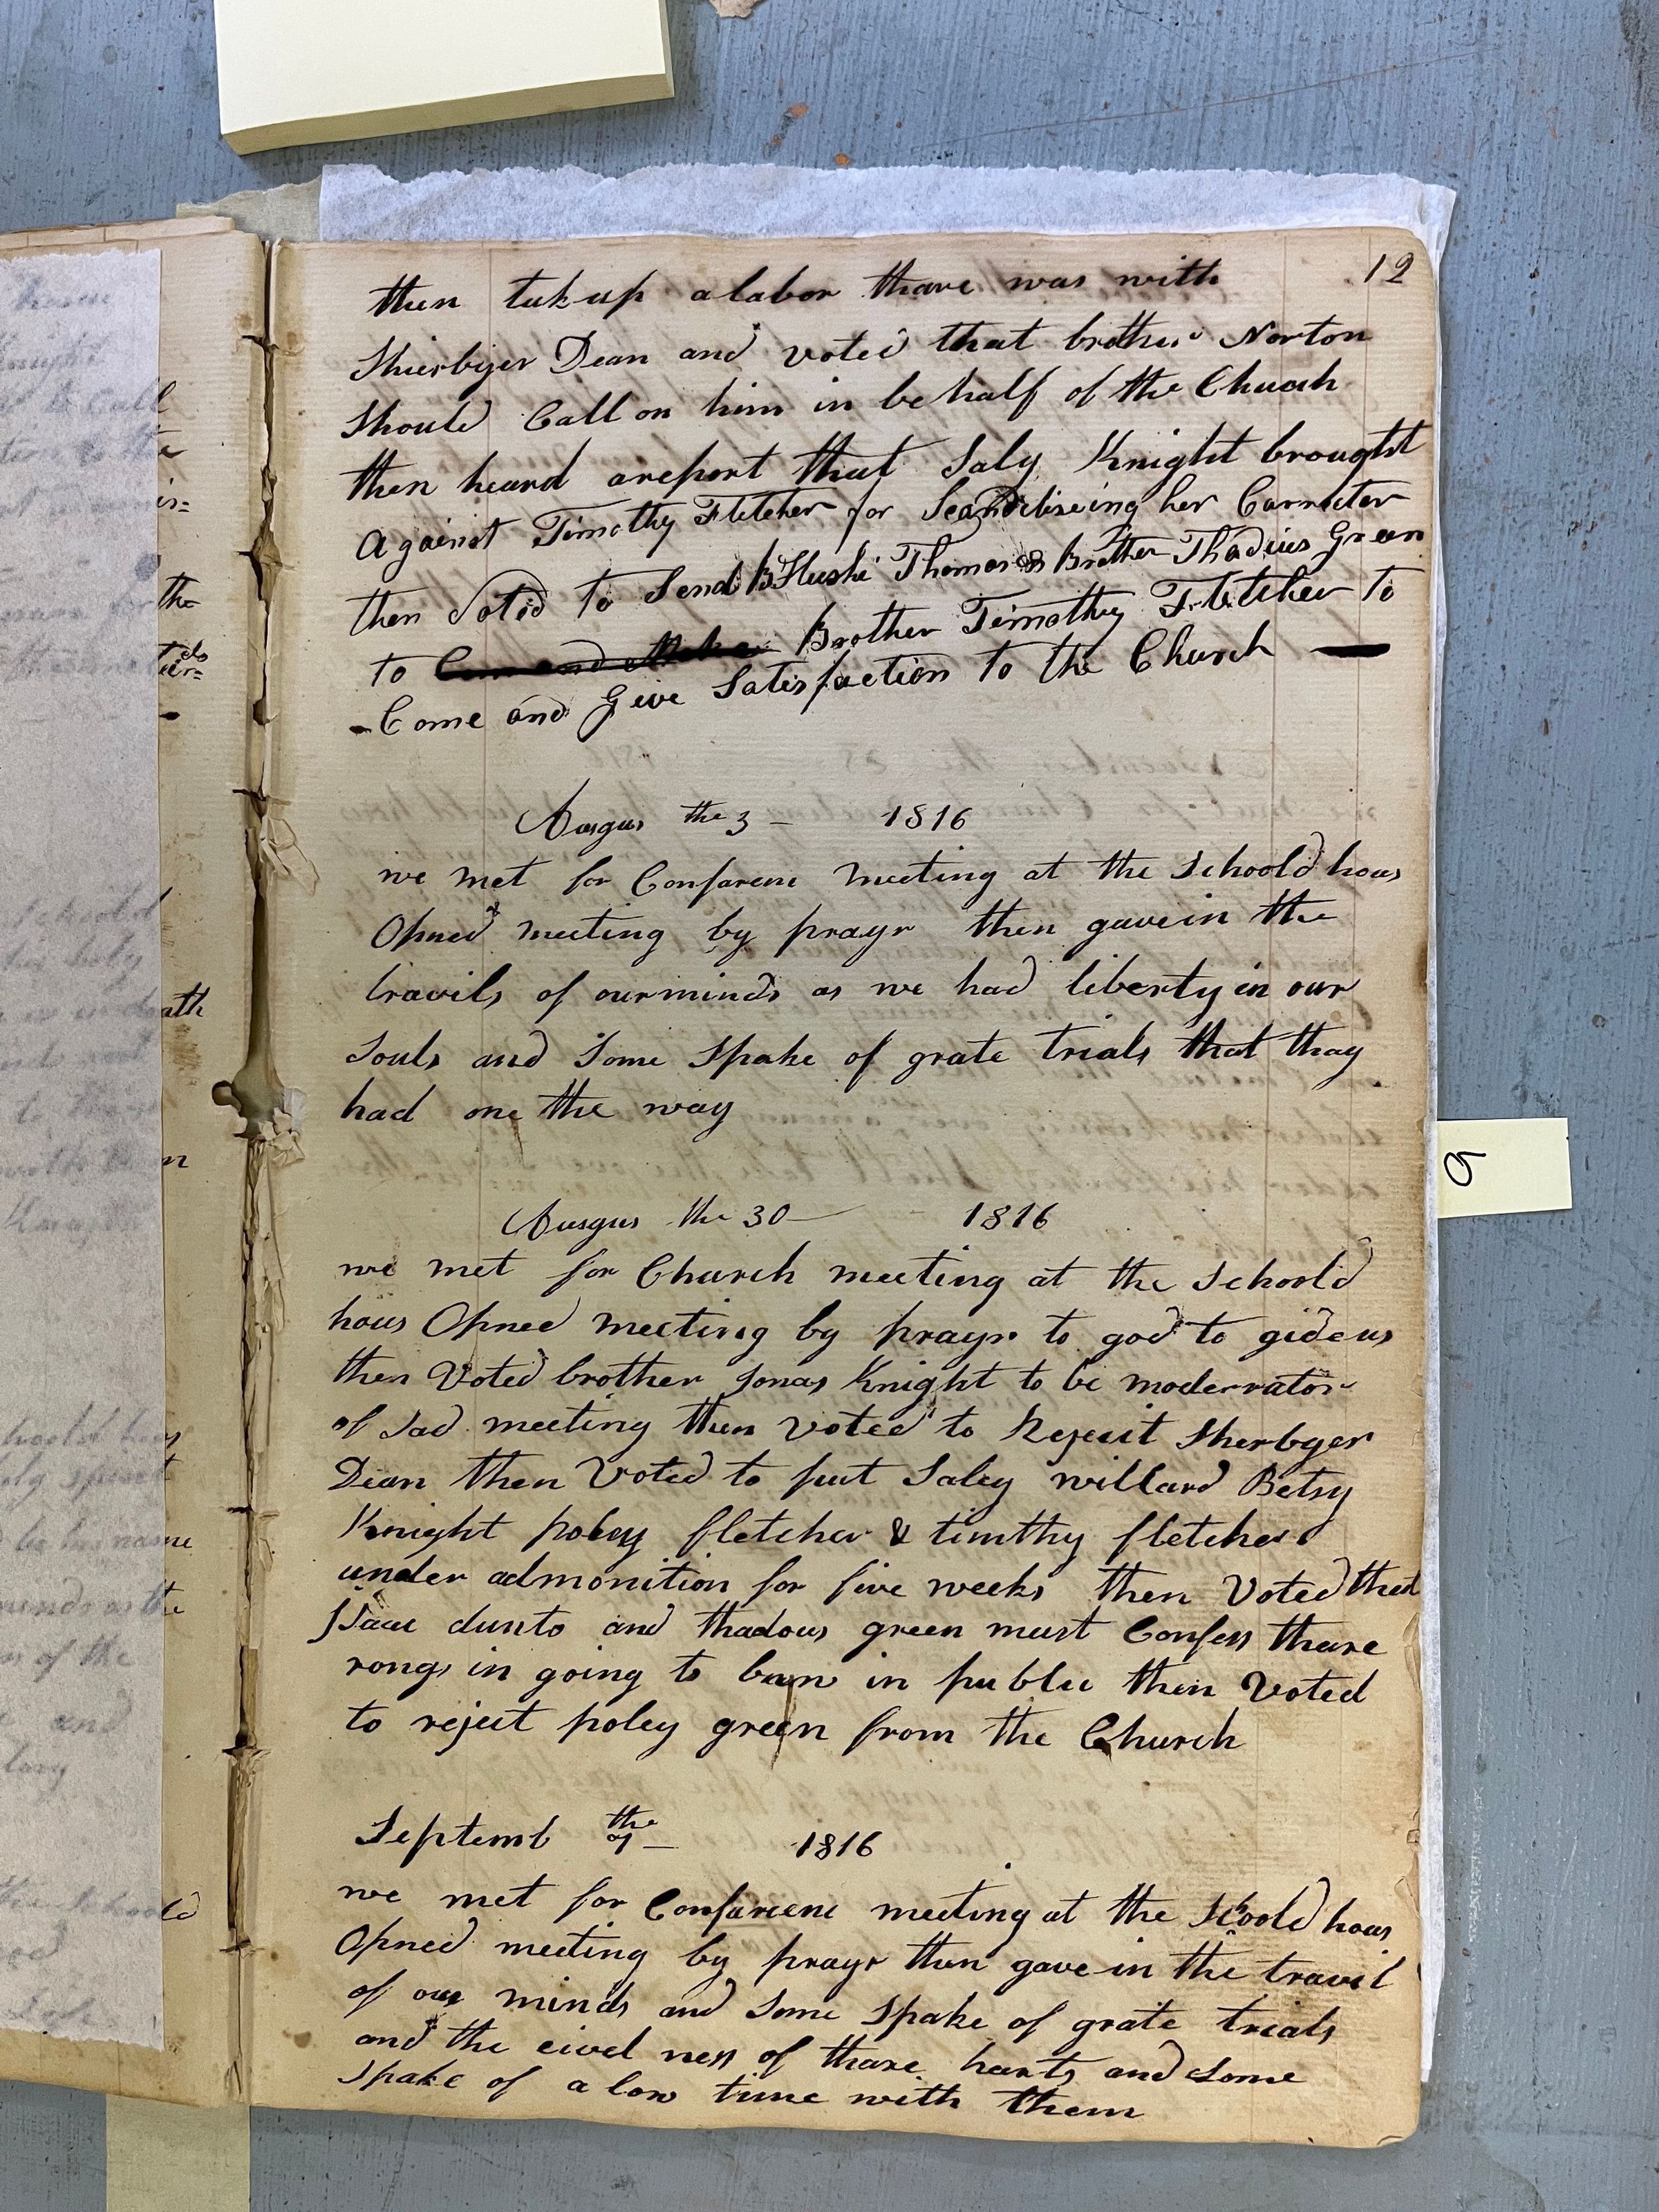 12
then tuk up a labor thare was with
Shierbijer Dean and voted that brother Norton
Should Call on him in be half of the Church
then heard a report that Saly Knight brought
Against Timothy Fletcher for Scandiliseing her Carracter
then Voted to Send B Thomas & Brother Thadius Green
to Brother Timothy Fletcher to
Come and Give Satisfaction to the Church
Ausgus the 3 - 1816
we met for Confarene meeting at the Schoold hous
Opned meeting by prayr then gave in the
travils of our minds as we had liberty in our
Souls and Some Spake of grate trials that thay
had one the way
Ausgus the 30 - 1816
we met for Church meeting at the Schoold
hous Opned meeting by prayr to god to gide us
then Voted brother Jonas Knight to be moderrator
of Sad meeting then voted to Regect Sherbyer
Dean then Voted to put Saley willard Betsy
Knight poley fletcher & timthy fletcher
under admonition for five weeks then Voted that
Isaac dunto and thadous green must Confess thare
rongs in going to in public then Voted
to reject poley green from the Church
Septemb the 7 - 1816
we met for Confarene meeting at the Schoold hous
Opned meeting by prayr then gave in the travil
of our minds and Some Spake of grate trials
and the eivel ness of thare harts and Some
Spake of a low time with them
9